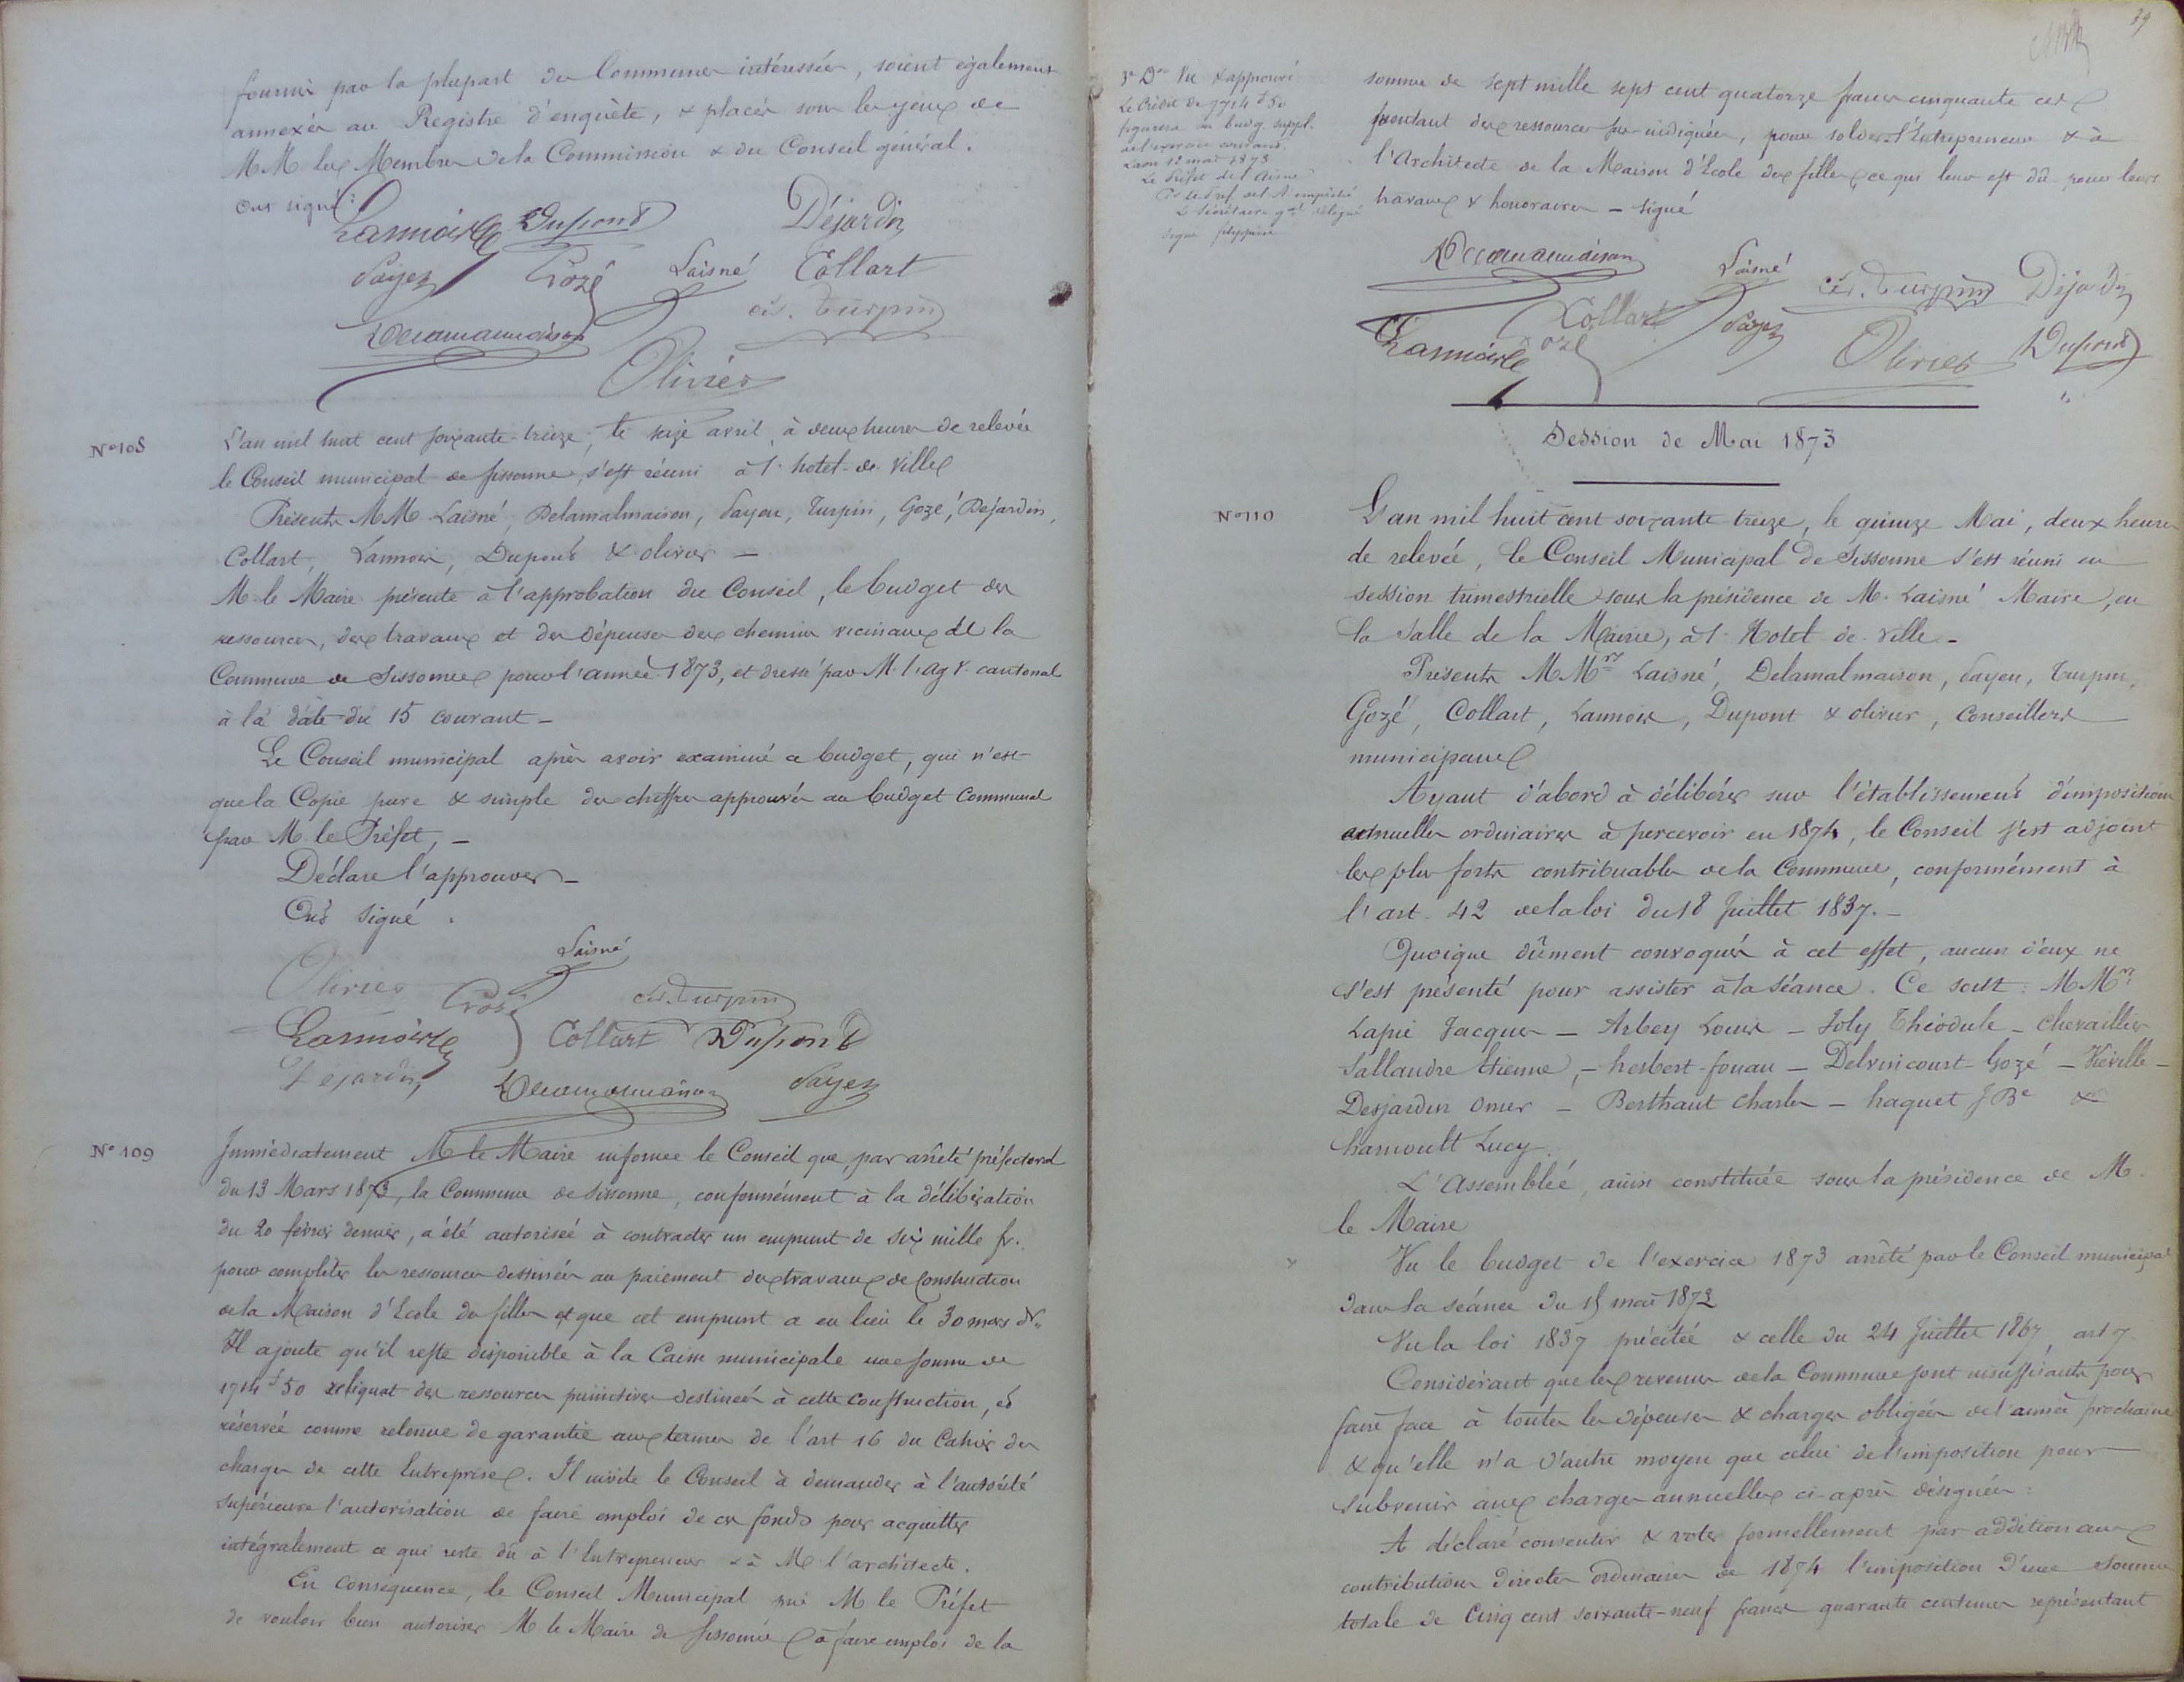 fournis par la plupart des Communes intéressées, soient également
annexés au Registre d'enquête, & placés sous les yeux de
MM. les Membres de la Commission & du Conseil général.
Ont signé :
Lannois Dupont Déjardin
Payen Gozé Laisné Collart
Delamalmaison Turpin
Olivier
N° 108
L'an mil huit cent soixante-treize, le seize avril, à deux heures de relevée
le Conseil municipal de Sissonne, s'est réuni à l'hotel-de-ville
Présents MM. Laisné, Delamalmaison, Payen, Turpin, Gozé, Dejardin,
Collart, Lannois, Dupont & olivier —
M. le Maire présente à l'approbation du Conseil, le budget des
ressources, des travaux et des dépenses des chemins vicinaux de la
Commune de Sissonne pour l'année 1873, et dressé par M. l'ag V. cantonal
à la date du 15 courant —
Le Conseil municipal après avoir examiné ce budget, qui n'est
que la Copie pure & simple des chiffres approuvés au budget Communal
par M. le Préfet, —
Déclare l'approuver —
Ont signé .
Olivier Laisné
Gozé Turpin
Lannois Collart Dupont
Déjardin Delamalmaison Payen
N° 109
Immédiatement M. le Maire informe le Conseil que, par arrêté préfectoral
du 13 Mars 1873, la Commune de Sissonne, conformément à la délibération
du 20 février dernier, a été autorisée à contracter un emprunt de six mille fr.
pour compléter les ressources destinées au paiement des travaux de Construction
de la Maison d'Ecole des filles et que cet emprunt a eu lieu le 30 mars dr.
Il ajoute qu'il reste disponible à la Caisse municipale une somme de
1714 f 50 reliquat des ressources primitives destinées à cette construction, et
réservée comme retenue de garantie aux termes de l'art 16 du Cahier des
charges de cette Entreprise. Il invite le Conseil à demander à l'autorité
supérieure l'autorisation de faire emploi de ces fonds pour acquitter
intégralement ce qui reste dû à l'Entrepreneur & à M. l'architecte.
En conséquence, le Conseil Municipal prie M. le Préfet
de vouloir bien autoriser M. le Maire de Sissonne à faire emploi de la
39
3e Don Vu & approuvé
Le Crédit de 7714 f 50
figurera au budg. suppl.
de l'exercice courant.
Laon 12 mai 1873
Le Préfet de l'Aisne
Pr le Préf. de l'A empêché
Le Secrétaire gal délégué
Signé
somme de sept mille sept cent quatorze francs cinquante ces
montant des ressources sus-indiquées, pour solder à l'Entrepreneur & à
l'Architecte de la Maison d'Ecole des filles ce qui leur est dû pour leurs
travaux & honoraires — signé
Delamalmaison Laisné Turpin Déjardin
Collart Payen
Lannois Gozé Olivier Dupont
Session de Mai 1873
N° 110
L'an mil huit cent soixante treize, le quinze Mai, deux heures
de relevée, le Conseil Municipal de Sissonne s'est réuni en
session trimestrielle sous la présidence de M. Laisné Maire, en
la Salle de la Mairie, à l'Hotel de Ville —
Présents MMrs Laisné, Delamalmaison, Payen, Turpin,
Gozé, Collart, Lannois, Dupont & olivier, Conseillers
municipaux
Ayant d'abord à délibérer sur l'établissement d'impositions
annuelles ordinaires à percevoir en 1874, le Conseil s'est adjoint
les plus forts contribuables de la Commune, conformément à
l'art. 42 de la loi du 18 Juillet 1837. —
Quoique dûment convoqués à cet effet, aucun d'eux ne
s'est présenté pour assister à la séance. Ce sont : MMrs
Lapie Jacques — Arbey Louis — Joly Théodule — Chevallier
Sallandre Etienne, — herbert-fouan — Delvincourt-Gozé — Viéville —
Desjardin Omer — Berthaut Charles — haquet J Bte &
hamoult Lucy.
L'Assemblée, ainsi constituée sous la présidence de M.
le Maire
Vu le budget de l'exercice 1873 arrêté par le Conseil municipal
dans la séance du 15 mai 1872
Vu la loi 1837 précitée & celle du 24 Juillet 1867, art 7
Considérant que les revenus de la Commune sont insuffisants pour
faire face à toutes les dépenses & charges obligées de l'année prochaine
& qu'elle n'a d'autre moyen que celui de l'imposition pour
subvenir aux charges annuelles ci-après désignées :
A déclaré consentir & voter formellement par addition aux
contributions Directes ordinaires de 1874 l'imposition d'une somme
totale de Cinq cent soixante-neuf francs quarante centimes représentant